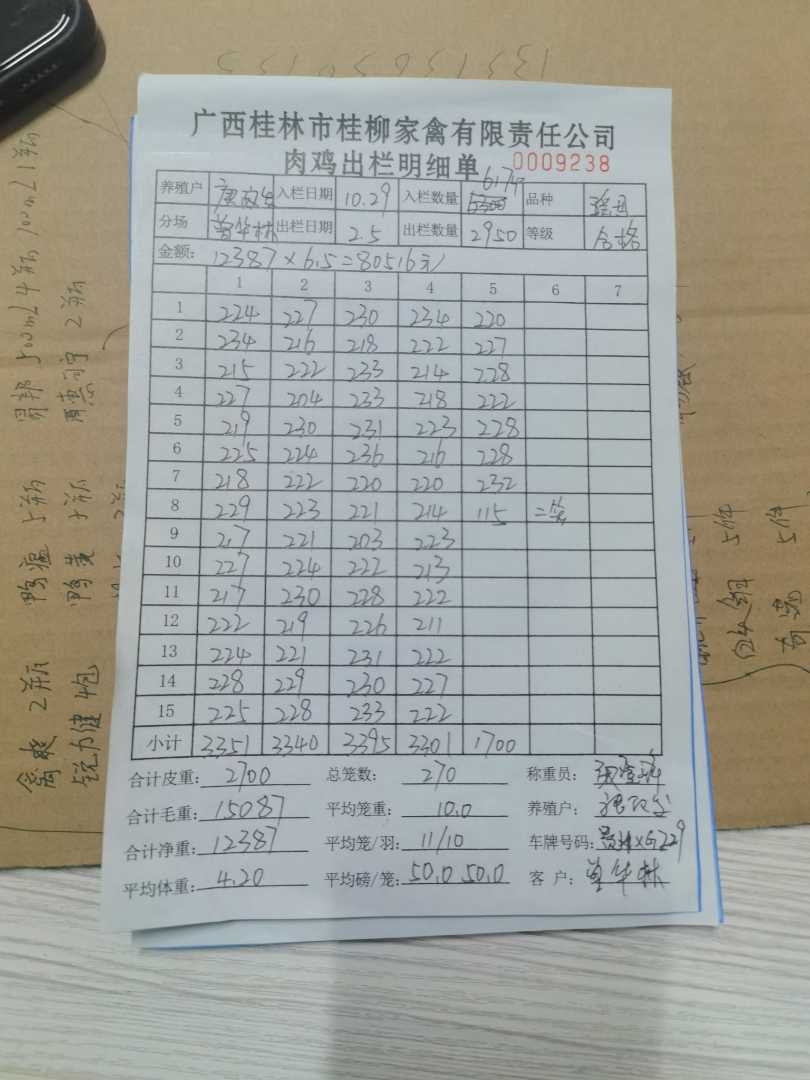 广西桂林市桂柳家禽有限责任公司
肉鸡出栏明细单 0009238
养殖户 入栏日期 10.29 入栏数量 品种
分场 曾华林 出栏日期 2.5 出栏数量 2950 等级 合格
金额: 12387×6.5=80516元
1 2 3 4 5 6 7
1 224 227 230 234 220
2 234 216 218 222 227
3 215 222 233 214 228
4 227 204 233 218 222
5 219 230 231 223 228
6 225 224 236 216 228
7 218 222 220 220 232
8 229 223 221 214 115 二笼
9 217 221 203 223
10 227 224 222 213
11 217 230 228 222
12 222 219 226 211
13 224 221 231 222
14 228 229 230 227
15 225 228 233 222
小计 3351 3340 3395 3301 1700
合计皮重: 2700 总笼数: 270 称重员:
合计毛重: 15087 平均笼重: 10.0 养殖户:
合计净重: 12387 平均笼/羽: 11/10 车牌号码:
平均体重: 4.20 平均磅/笼: 50.0 50.0 客户: 曾华林
易邦 500mL 4瓶 100mL 1瓶
2瓶
鸭瘟 5瓶
禽 2瓶
5件
5件